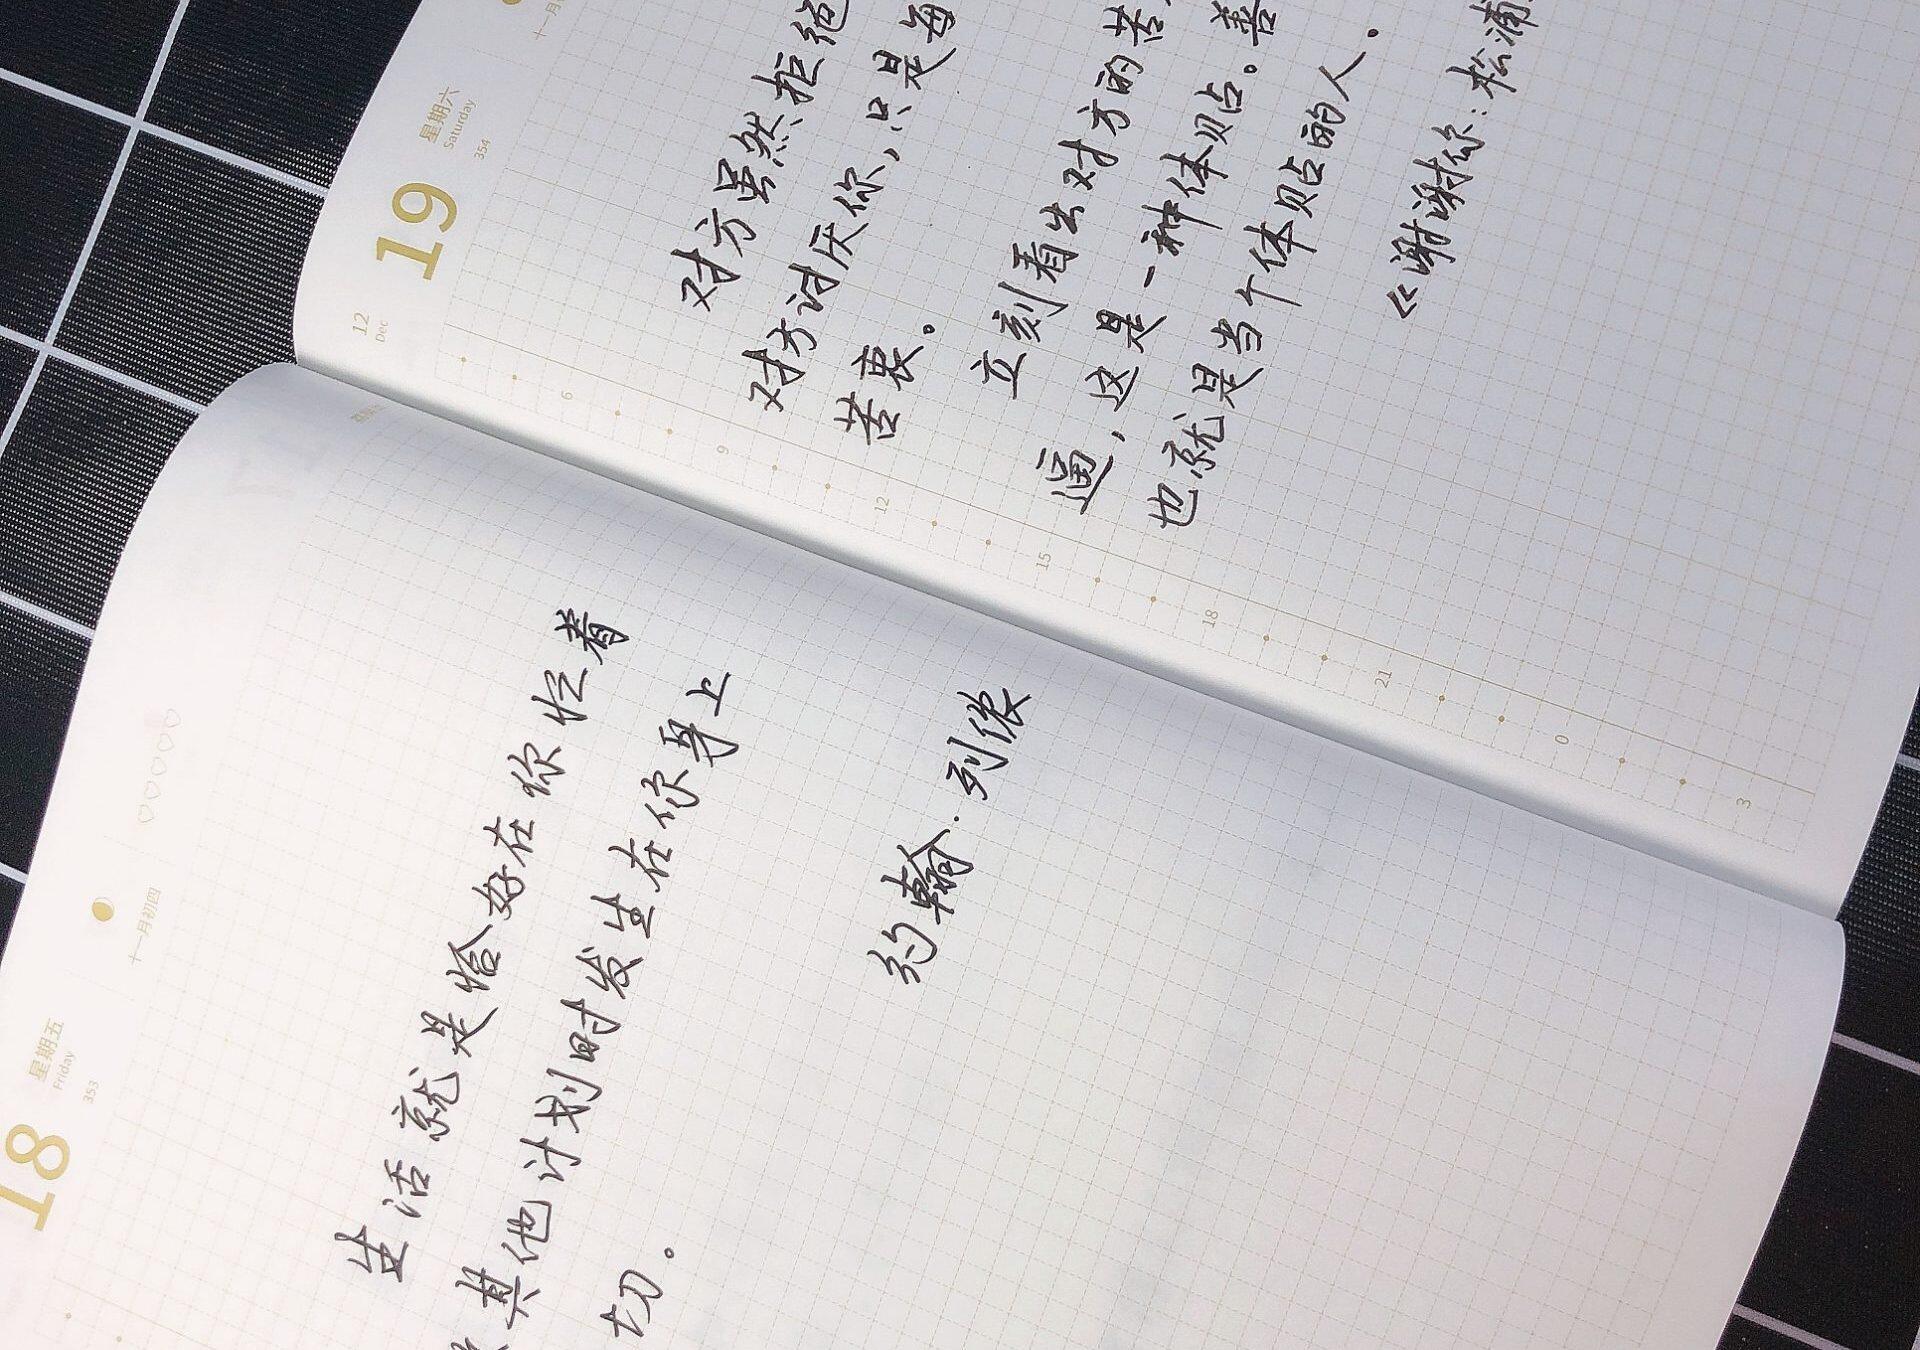 18
星期五
Friday
353
十一月初四
生活就是恰好在你忙着
其他计划时发生在你身上
切。
约翰·列侬
12
Dec
19
星期六
Saturday
354
十一月
对方虽然拒绝
对方讨厌你,只是每
苦衷。
立刻看出对方的苦
逼,这是一种体贴。善
也就是当个体贴的人。
《谢谢你:松浦
6
9
12
15
18
21
0
3